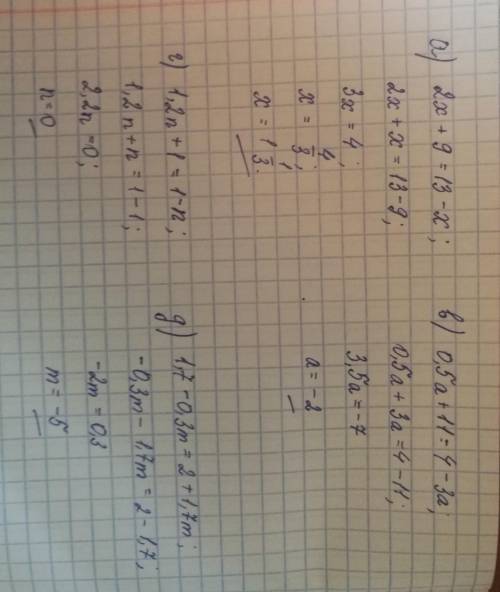 а) 2x + 9 = 13 - x;
2x + x = 13 - 9;
3x = 4;
x = 4/3;
x = 1 1/3.
в) 0,5a + 11 = 4 - 3a;
0,5a + 3a = 4 - 11;
3,5a = -7
a = -2
г) 1,2n + 1 = 1 - n;
1,2n + n = 1 - 1;
2,2n = 0;
n = 0
д) 1,7 - 0,3m = 2 + 1,7m;
-0,3m - 1,7m = 2 - 1,7;
-2m = 0,3
m = -5